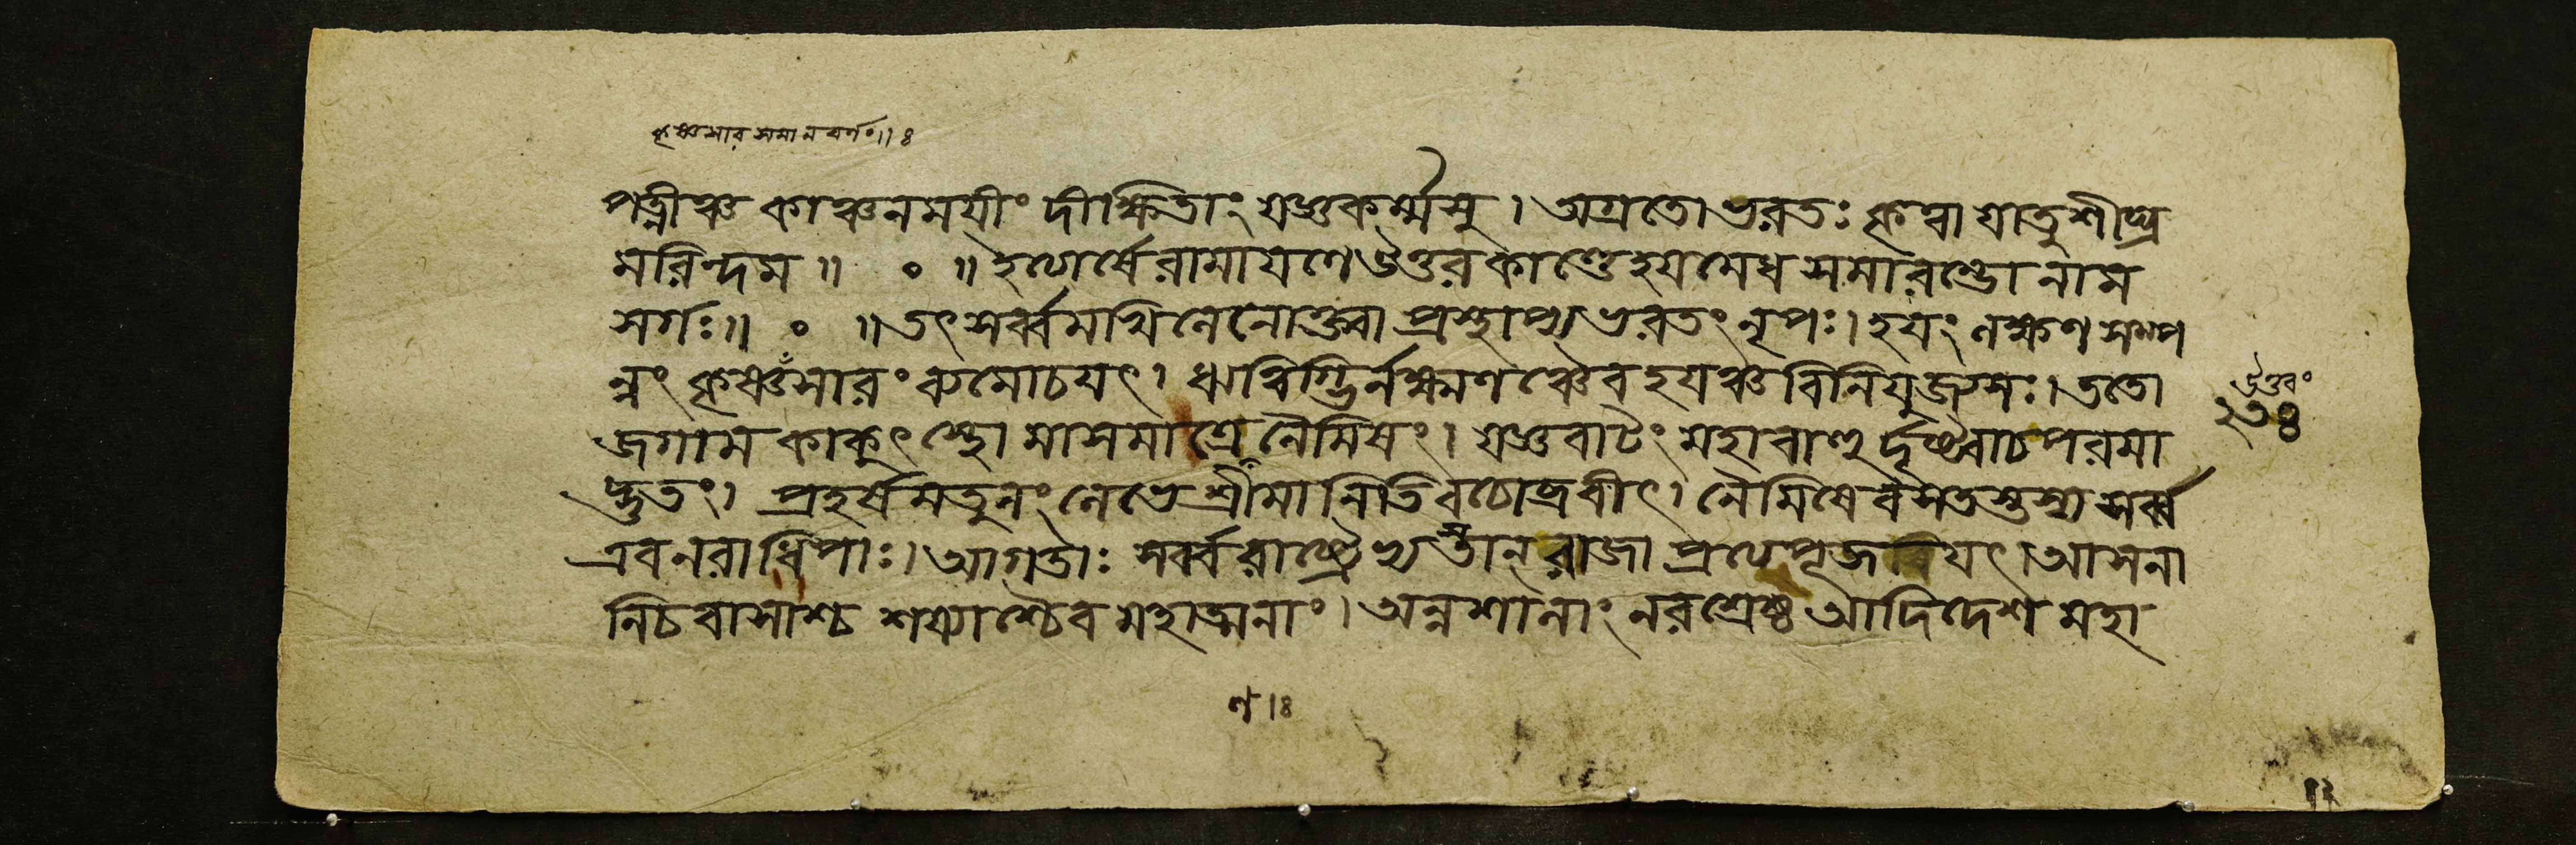 কৃষ্ণসার সমান বর্ণঃ॥ঃ
পত্নীঞ্চ কাঞ্চনময়ীং দীক্ষিতাং যজ্ঞকর্ম্মসু । অগ্রতো ভরতঃ কৃত্বা যাতু শীঘ্র
মরিন্দম ॥ ০ ॥ ইত্যার্ষে রামায়ণে উত্তরকাণ্ডে হয়মেধ সমারম্ভো নাম
সর্গঃ॥ ০ ॥ তৎ সর্ব্বমখিলেনোক্ত্বা প্রস্থাপ্য ভরতং নৃপঃ। হয়ং লক্ষণ সম্প
ন্নং কৃষ্ণসারং রুমোচয়ৎ। ঋত্বিগ্ভির্লক্ষ্মণঞ্চৈব হয়ঞ্চ বিনিযুজ্য সঃ। ততো
জগাম কাকুৎস্থো মাসমাত্রে নৈমিষং। যজ্ঞবাটং মহাবাহুর্দৃষ্ট্বা চ পরমা
দ্ভুতং। প্রহর্ষমতুলং লেভে শ্রীমানিতি বচোব্রবীৎ। নৈমিষে বসতস্তস্য সর্ব্ব
এব নরাধিপাঃ। আগতাঃ সর্ব্বরাষ্ট্রেভ্যস্তান্ রাজা প্রত্যপূজয়ৎ। আসনা
নি চ বাসাশ্চ শয্যাশ্চৈব মহাত্মনাং। অন্নপানাং নরশ্রেষ্ঠ আদিদেশ মহা
উত্তরং
২৩৪
ল।ঃ